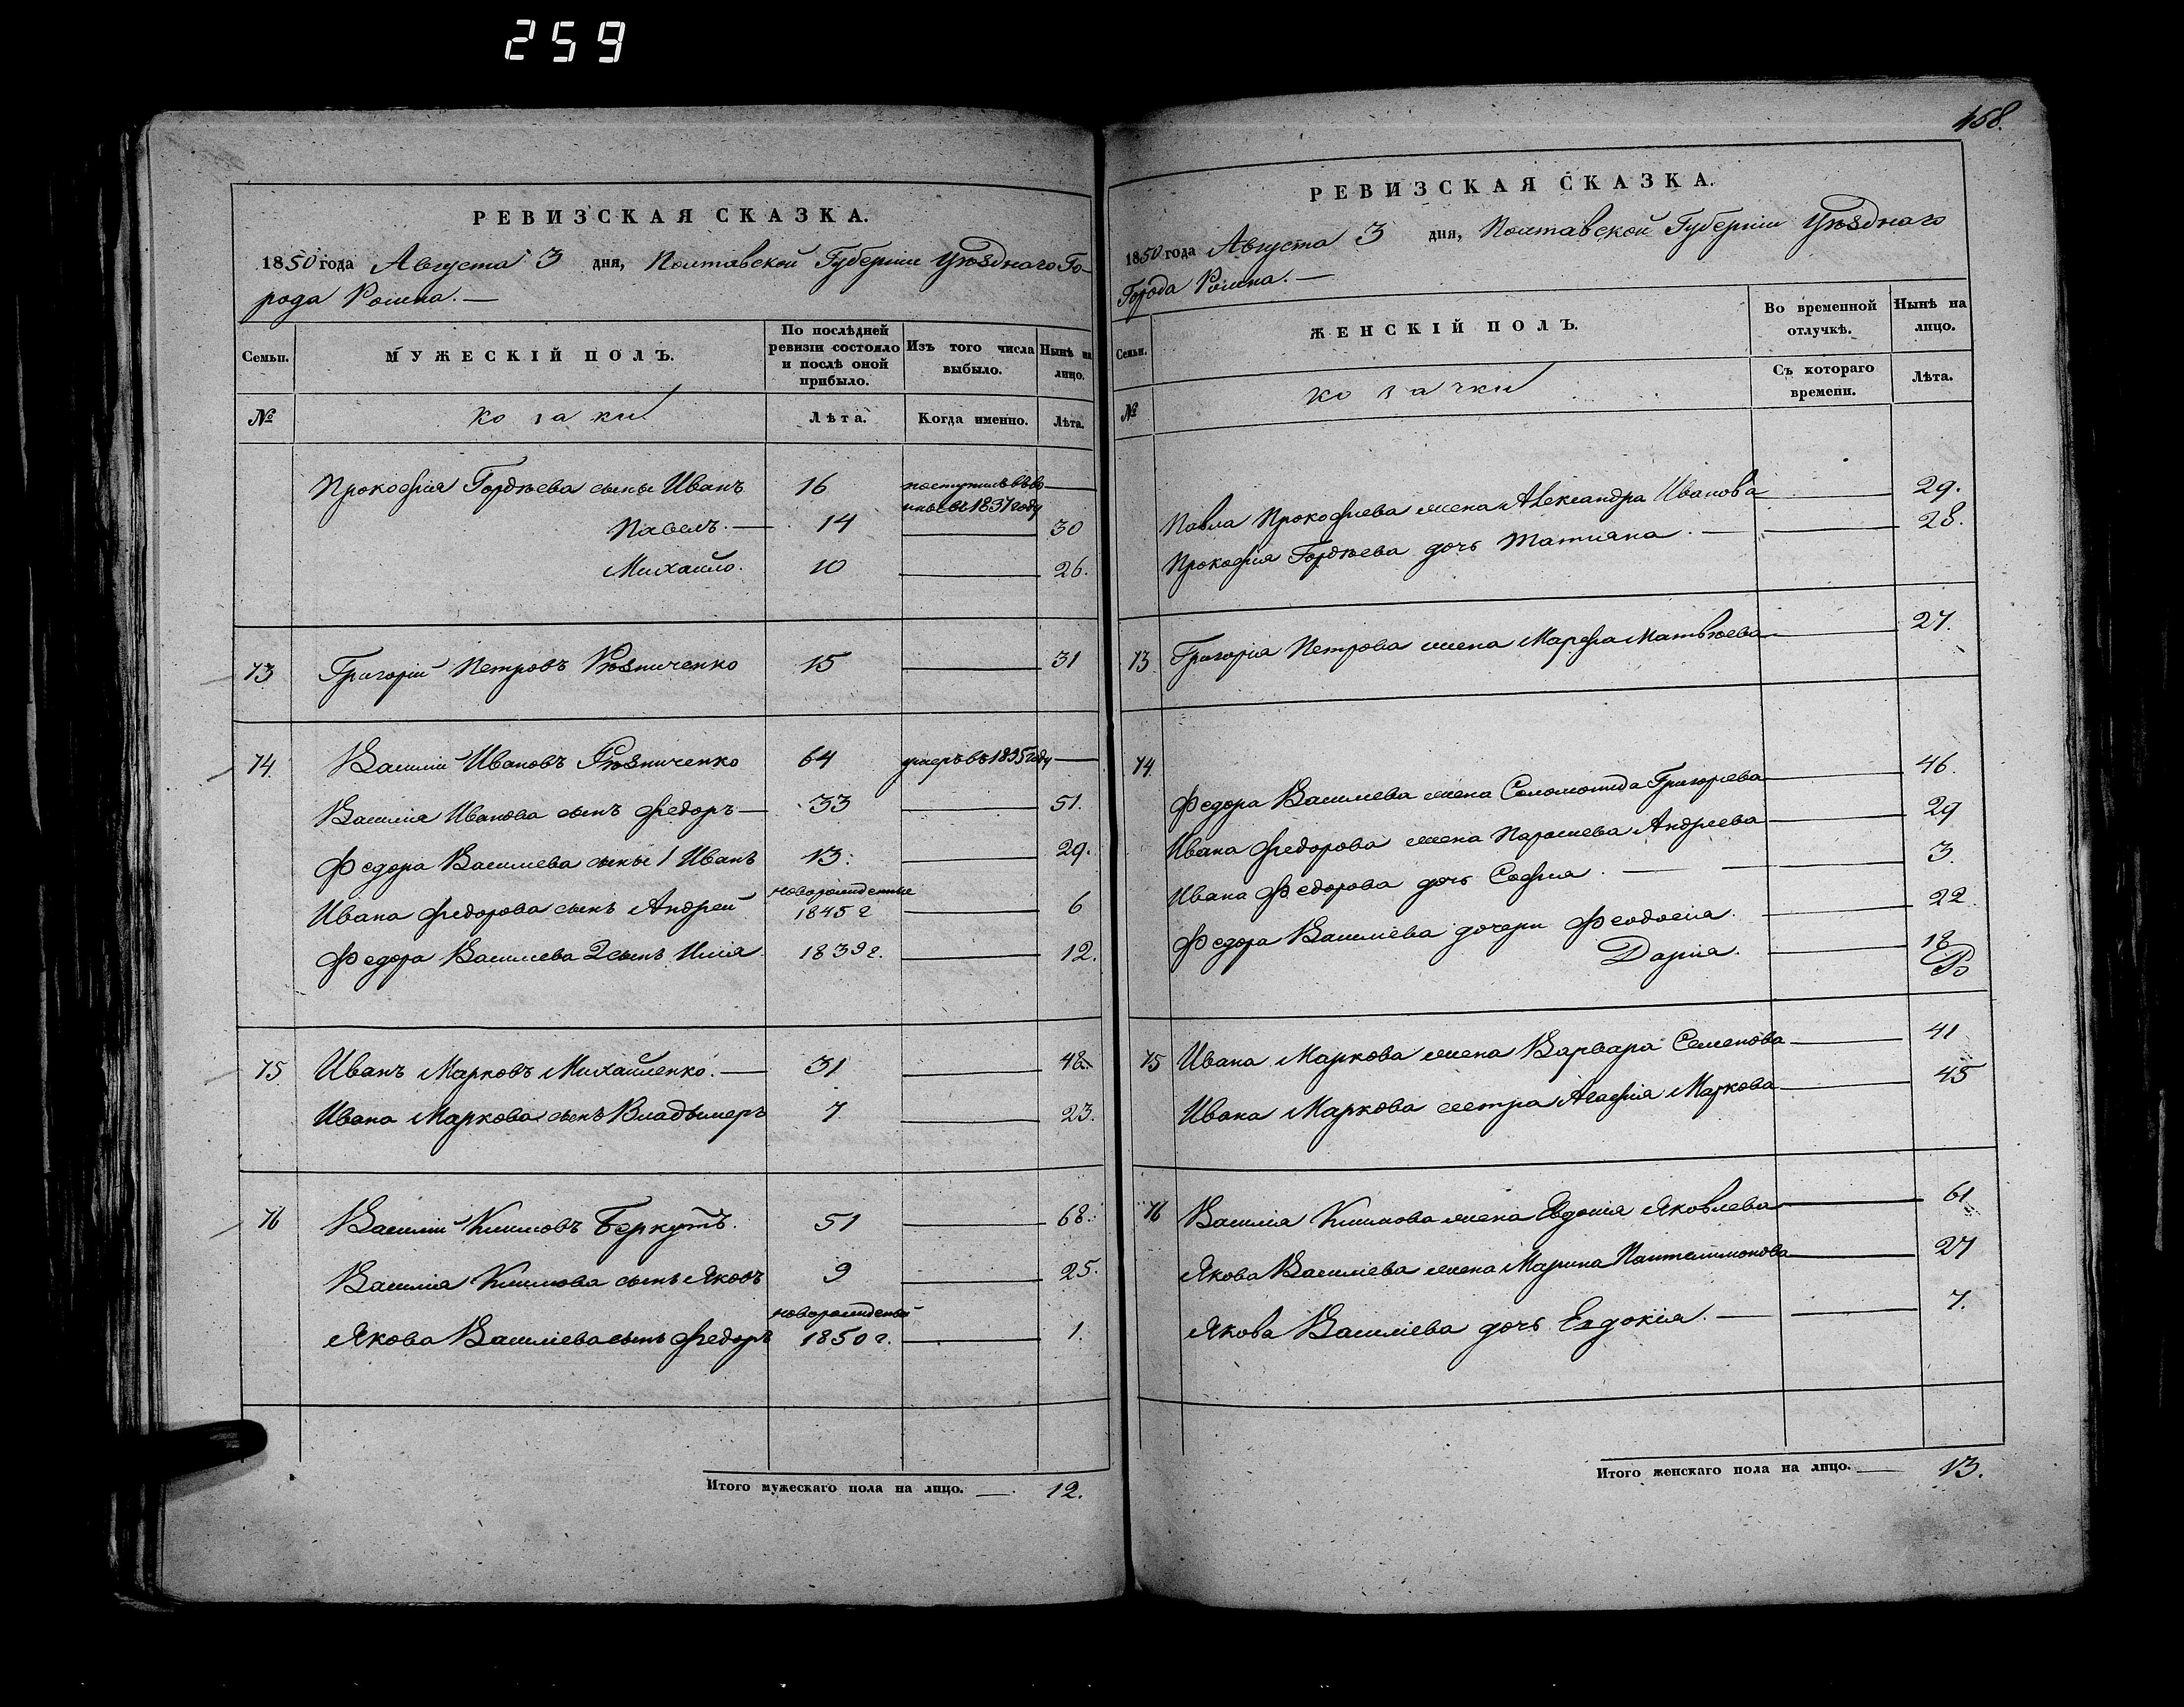 259
РЕВИЗСКАЯ СКАЗКА.
1850 года Августа 3 дня, Полтавской Губерніи Уѣзднаго Го-
рода Ромна.—
Семьи.
МУЖЕСКІЙ ПОЛЪ.
По послѣдней ревизіи состояло и послѣ оной прибыло.
Изъ того числа выбыло.
Нынѣ на лицо.
№
козаки
Лѣта.
Когда именно.
Лѣта.
Прокофія Гордѣева сыны Иванъ 16 поступилъ въ 1837 году —
Павелъ.— 14 — 30
Михайло. 10 — 26.
73 Григорій Петровъ Рѣзниченко 15 — 31
74. Василій Ивановъ Рѣзниченко 64 умеръ въ 1835 году —
Василія Иванова сынъ Федоръ— 33 — 51.
Федора Василиева сыны 1 Иванъ 13. — 29.
Ивана Федорова сынъ Андрей новорожденные 1845 г — 6
Федора Василиева 2 сынъ Илія 1839 г. — 12.
75 Иванъ Марковъ Михайленко.— 31 — 48.
Ивана Маркова сынъ Владымеръ 7 — 23.
76 Василій Климовъ Беркутъ. 51 — 68.
Василія Климова сынъ Яковъ 9 — 25.
Якова Василіева сынъ Федоръ новорожденый 1850 г. — 1.
Итого мужескаго пола на лицо. — 12.
458.
РЕВИЗСКАЯ СКАЗКА.
1850 года Августа 3 дня, Полтавской Губерніи Уѣзднаго
Города Ромна.—
Семьи.
ЖЕНСКІЙ ПОЛЪ.
Во временной отлучкѣ.
Нынѣ на лицо.
№
козачки
Съ котораго времени.
Лѣта.
Павла Прокофиева жена Александра Иванова — 29.
Прокофія Гордѣева дочь Татиана.— — 28.
73 Григорія Петрова жена Марфа Матвѣева — 27.
74. Федора Василиева жена Соломонида Григорева — 46.
Ивана Федорова жена Парасиева Андреева — 29
Ивана Федорова дочь Софиа.— — 3.
Федора Василіева дочери Феодосіа. — 22.
Даріа. — 18
75 Ивана Маркова жена Варвара Семенова — 41
Ивана Маркова сестра Агафія Маркова — 45
76 Василіа Климова жена Евдокіа Яковлева — 61
Якова Василіева жена Марина Пантелимонова — 27
Якова Василіева дочь Евдокіа.— — 7.
Итого женскаго пола на лицо. — 13.